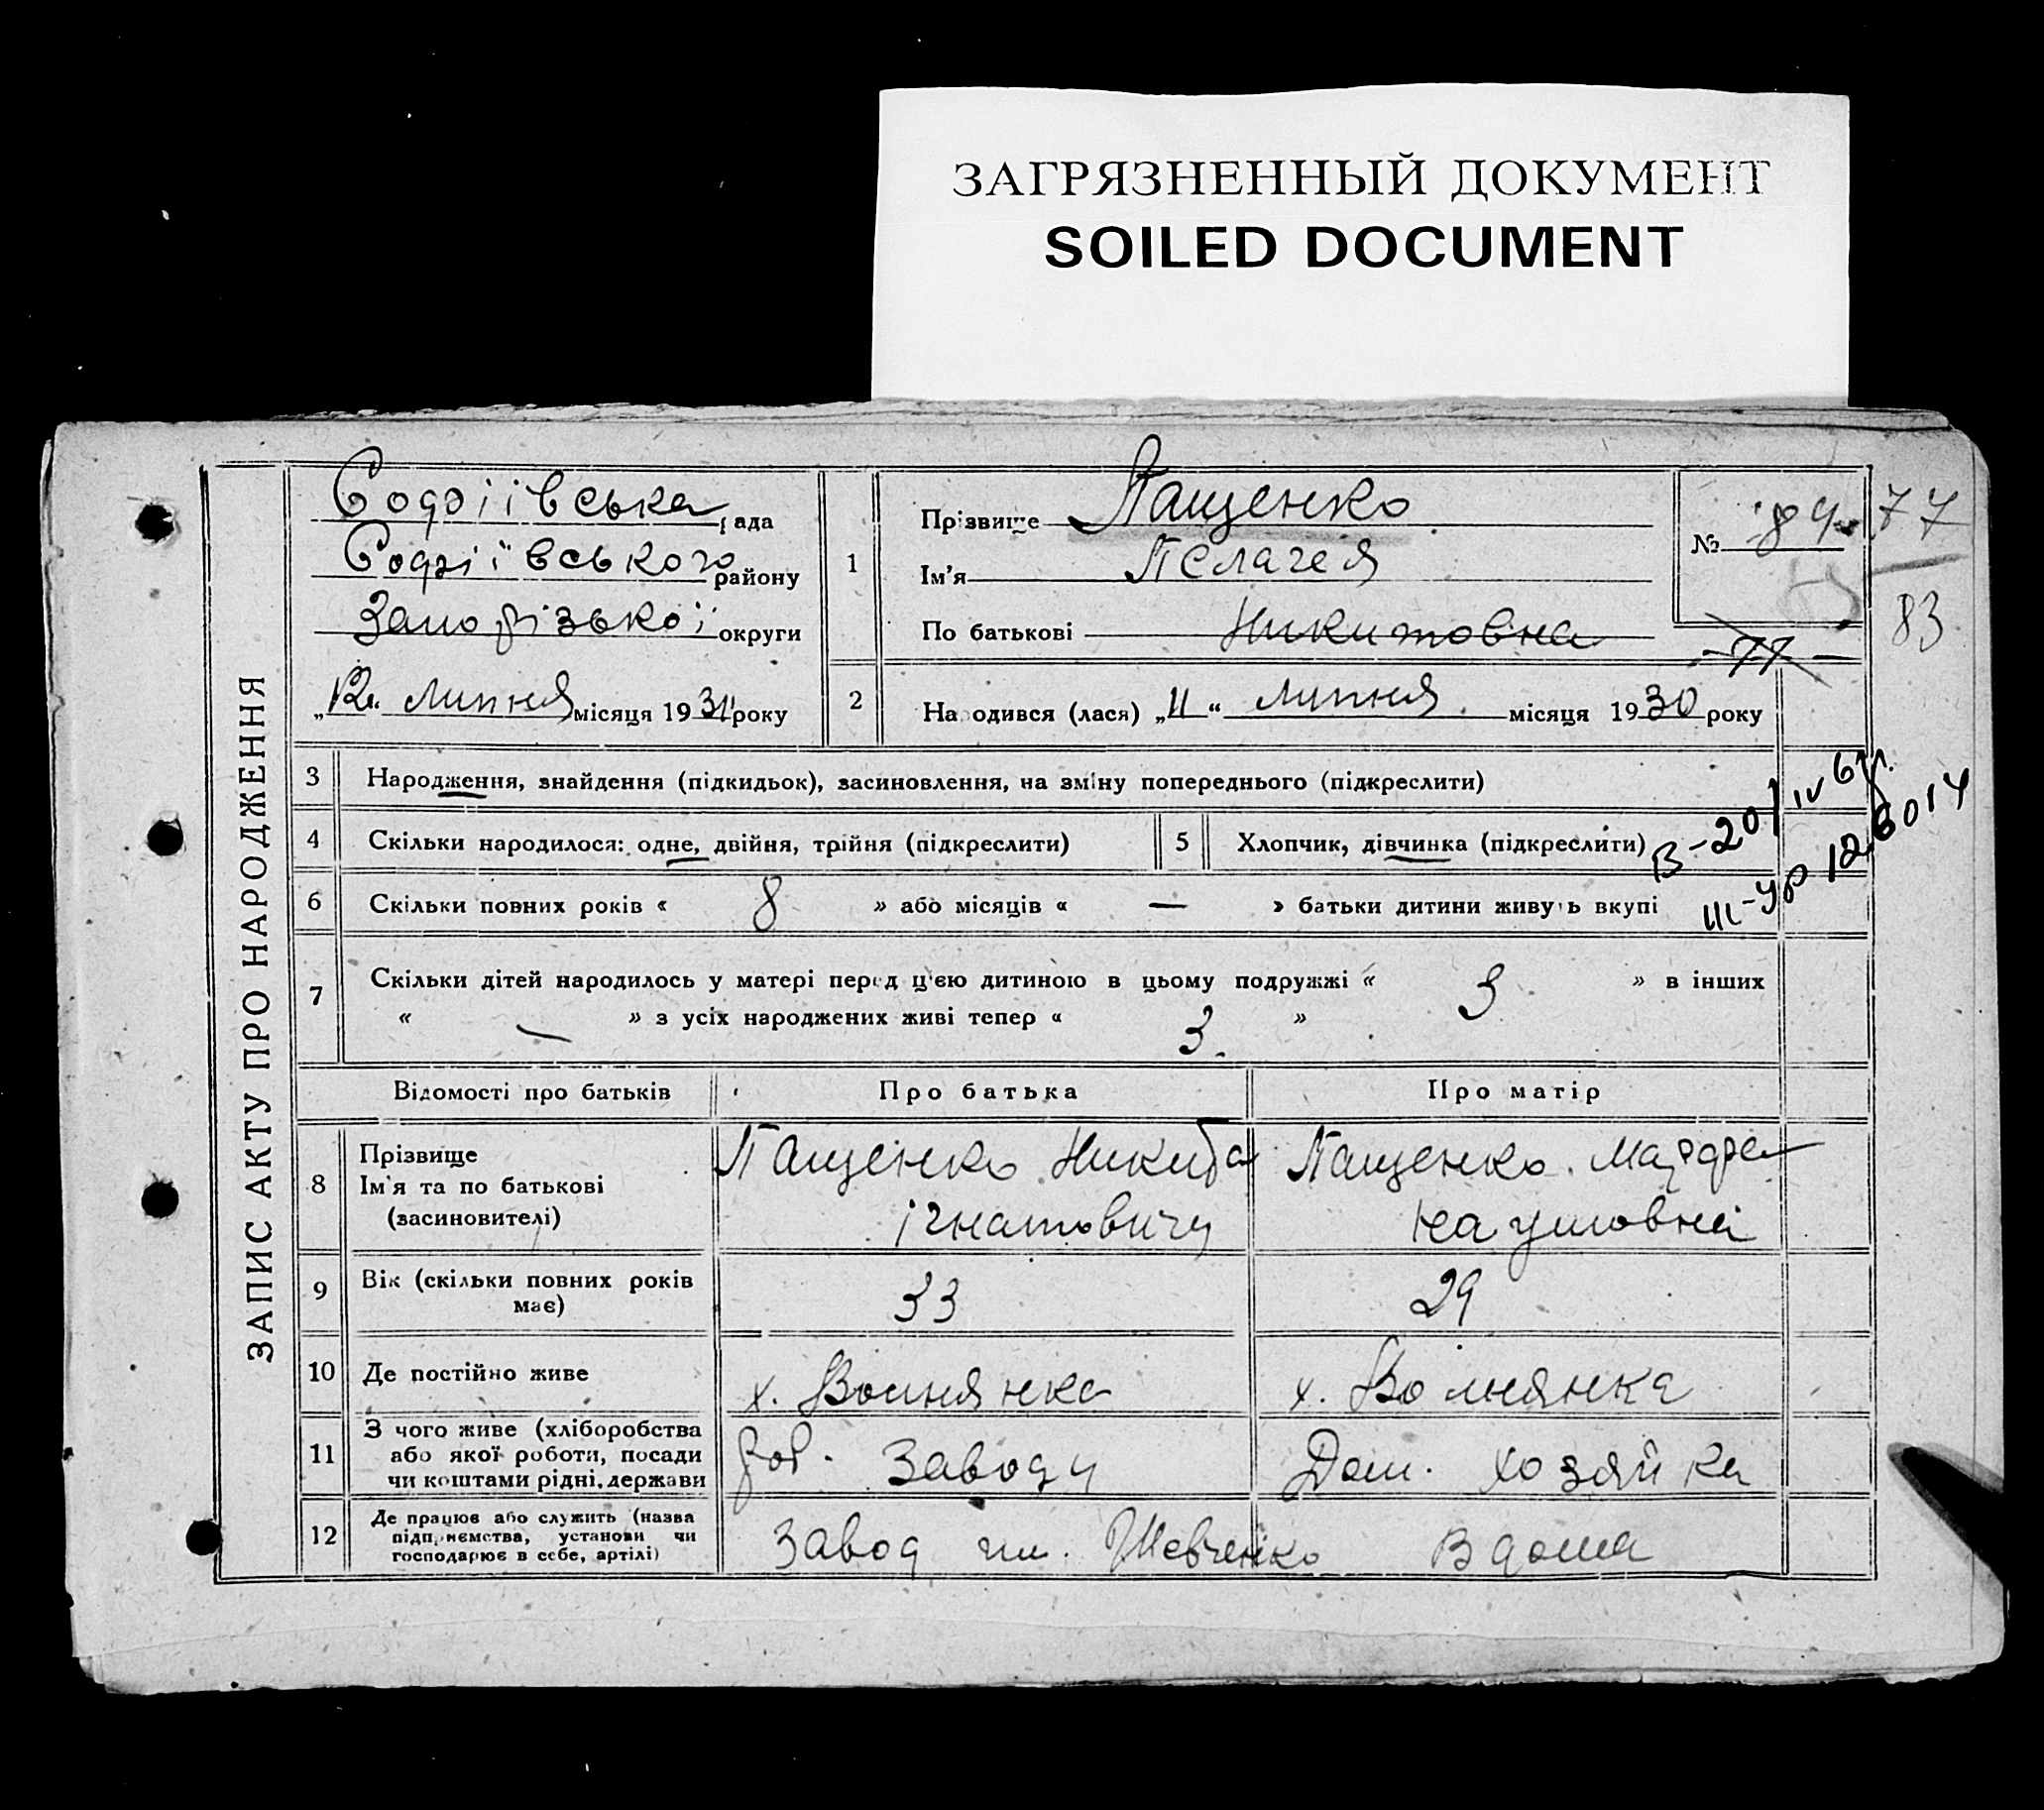 ЗАГРЯЗНЕННЫЙ ДОКУМЕНТ
SOILED DOCUMENT
ЗАПИС АКТУ ПРО НАРОДЖЕННЯ
Софіївська рада
Софіївського району
Запорізької округи
„12“ липня місяця 1931 року
1
Прізвище Пащенко
Ім'я Пелагея
По батькові Никитовна
№ 84
77
83
77
2 Народився (лася) „11“ липня місяця 1930 року
3 Народження, знайдення (підкидьок), засиновлення, на зміну попереднього (підкреслити)
4 Скільки народилося: одне, двійня, трійня (підкреслити) 5 Хлопчик, дівчинка (підкреслити)
В-20/IV
III-УР
6 Скільки повних років « 8 » або місяців « — » батьки дитини живуть вкупі
7 Скільки дітей народилось у матері перед цією дитиною в цьому подружжі « 3 » в інших
« — » з усіх народжених живі тепер « 3. »
Відомості про батьків Про батька Про матір
8 Прізвище
Ім'я та по батькові
(засиновителі)
Пащенко Никита
Ігнатович
Пащенко Марфа
Наумовна
9 Вік (скільки повних років
має)
33 29
10 Де постійно живе х. Вольнянка х. Вольнянка
11 З чого живе (хліборобства
або якої роботи, посади
чи коштами рідні, держави
роб. Заводу Дом. хозяйка
12 Де працює або служить (назва
підприємства, установи чи
господарює в себе, артілі)
Завод им. Шевченко В дома